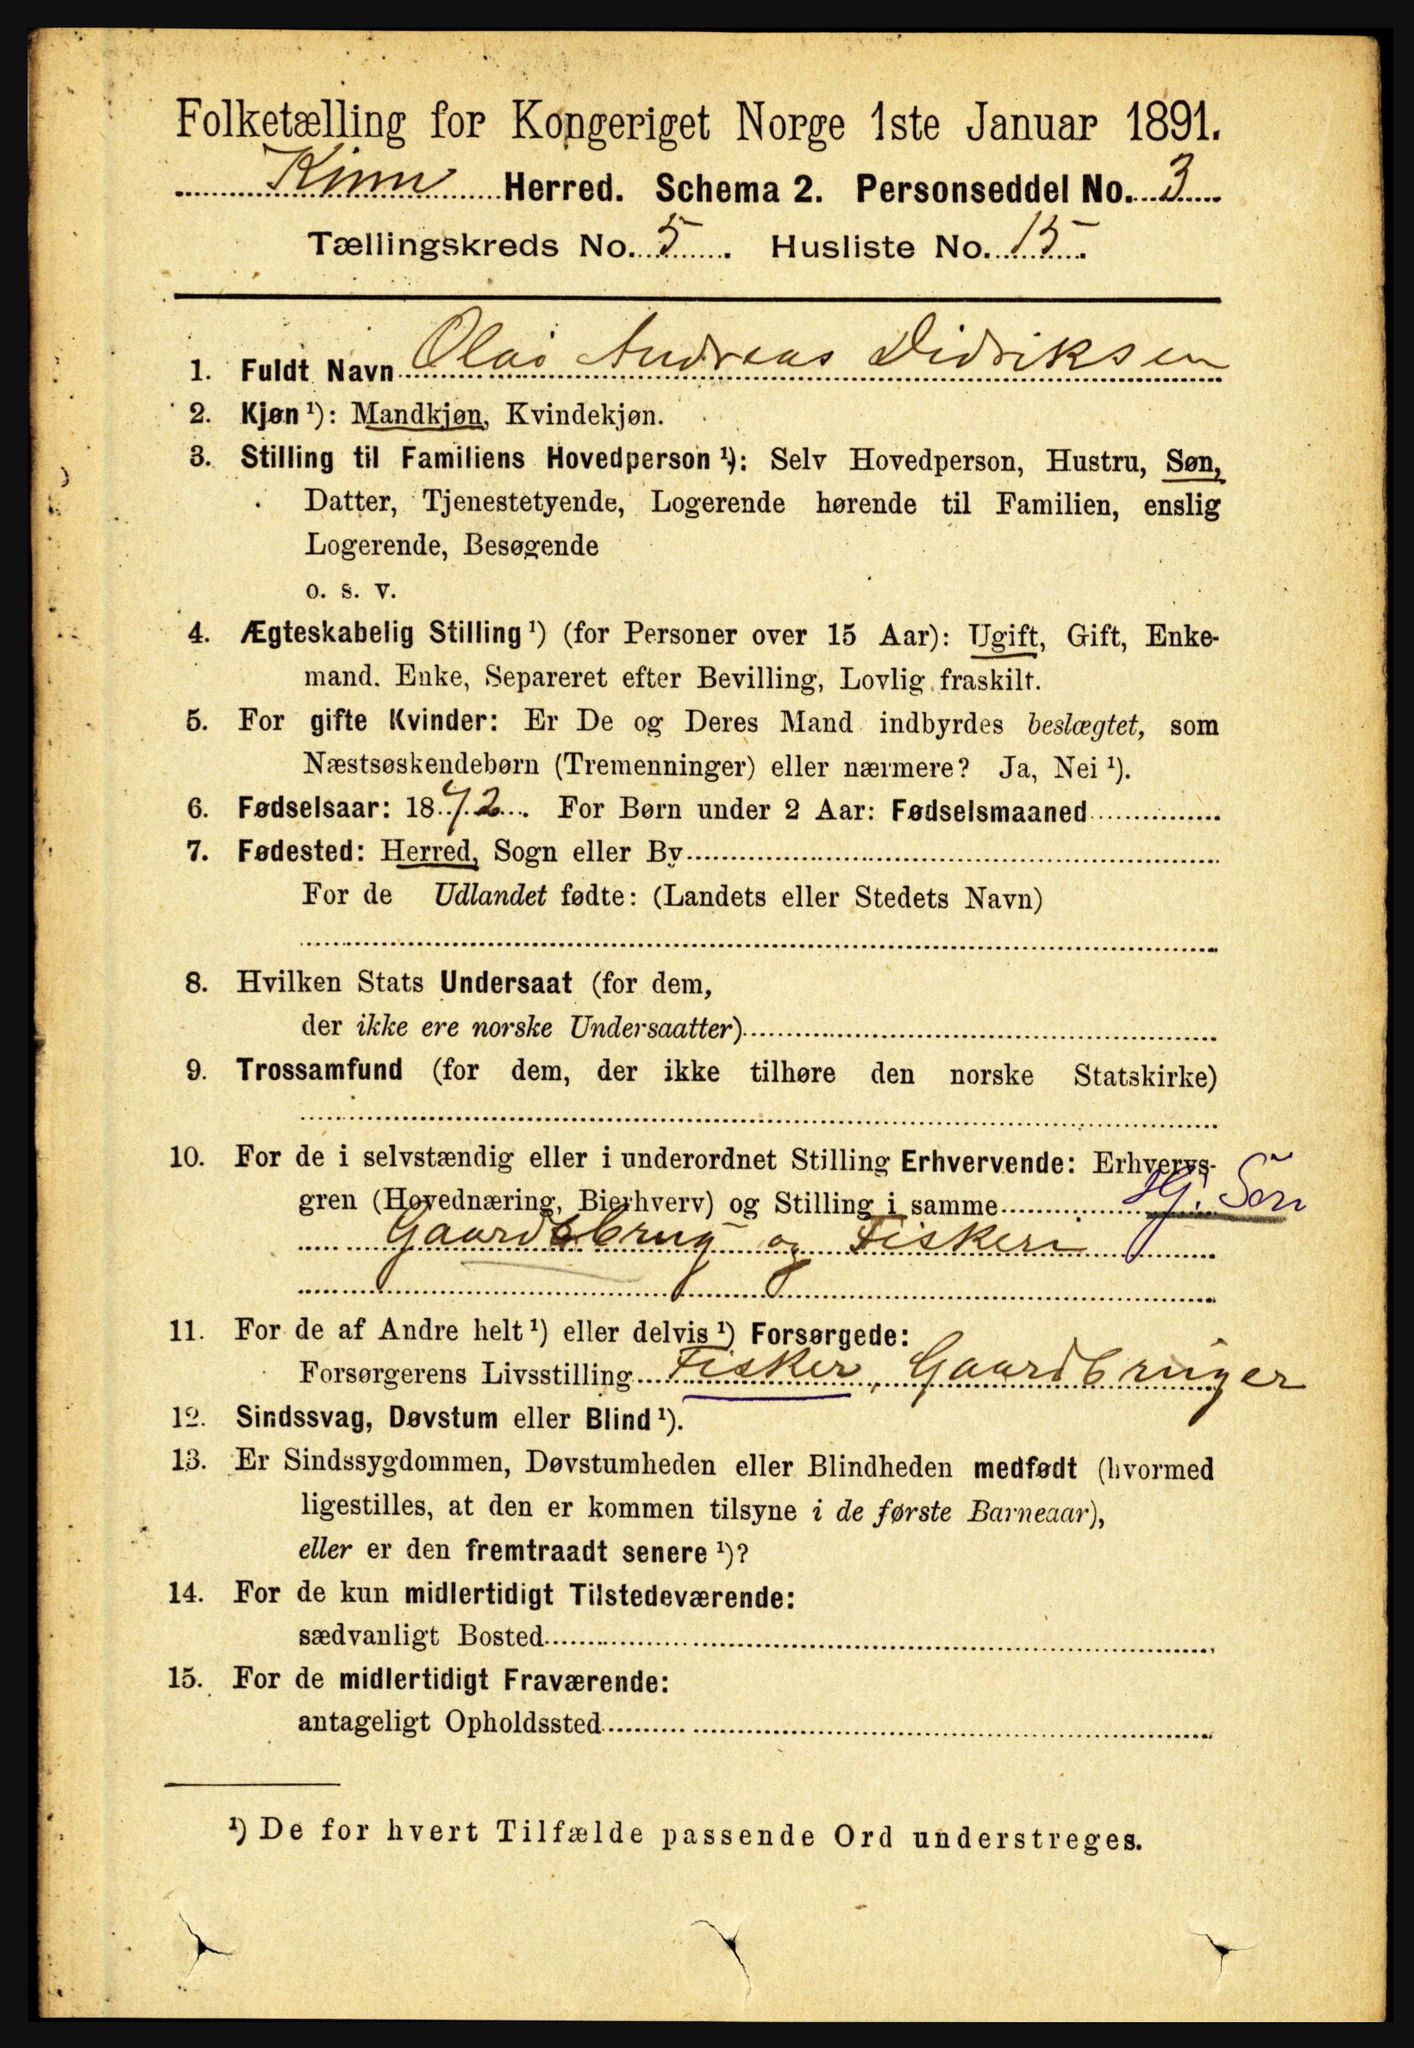 Folketælling for Kongeriget Norge 1ste Januar 1891.
Kinn Herred. Schema 2. Personseddel No. 3
Tællingskreds No. 5. Husliste No. 15.
1. Fuldt Navn Olai Andreas Didriksen
2. Kjøn ¹): Mandkjøn, Kvindekjøn.
3. Stilling til Familiens Hovedperson ¹): Selv Hovedperson, Hustru, Søn,
Datter, Tjenestetyende, Logerende hørende til Familien, enslig
Logerende, Besøgende
o. s. v.
4. Ægteskabelig Stilling ¹) (for Personer over 15 Aar): Ugift, Gift, Enke-
mand. Enke, Separeret efter Bevilling, Lovlig fraskilt.
5. For gifte Kvinder: Er De og Deres Mand indbyrdes beslægtet, som
Næstsøskendebørn (Tremenninger) eller nærmere? Ja, Nei ¹).
6. Fødselsaar: 1872. For Børn under 2 Aar: Fødselsmaaned
7. Fødested: Herred, Sogn eller By
For de Udlandet fødte: (Landets eller Stedets Navn)
8. Hvilken Stats Undersaat (for dem,
der ikke ere norske Undersaatter)
9. Trossamfund (for dem, der ikke tilhøre den norske Statskirke)
10. For de i selvstændig eller i underordnet Stilling Erhvervende: Erhvervs-
gren (Hovednæring, Bierhverv) og Stilling i samme Hj. Søn
Gaardsbrug og Fiskeri
11. For de af Andre helt ¹) eller delvis ¹) Forsørgede:
Forsørgerens Livsstilling Fisker, Gaardbruger
12. Sindssvag, Døvstum eller Blind ¹).
13. Er Sindssygdommen, Døvstumheden eller Blindheden medfødt (hvormed
ligestilles, at den er kommen tilsyne i de første Barneaar),
eller er den fremtraadt senere ¹)?
14. For de kun midlertidigt Tilstedeværende:
sædvanligt Bosted
15. For de midlertidigt Fraværende:
antageligt Opholdssted
¹) De for hvert Tilfælde passende Ord understreges.